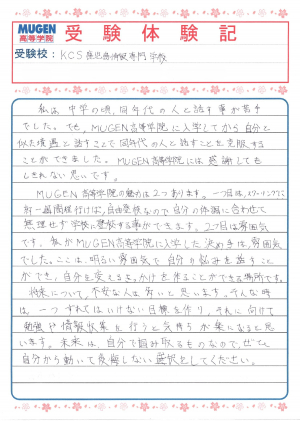 MUGEN
高等学院
受験体験記
受験校：KCS鹿児島情報専門学校
私は中学の頃、同年代の人と話す事が苦手
でした。でも、MUGEN高等学院に入学してから自分と
似た境遇と話すことで同年代の人と話すことを克服する
ことができました。MUGEN高等学院には感謝しても
しきれない思いです。
MUGEN高等学院の魅力は2つあります。一つ目は、スクーリングに
年一週間程行けば、自由登校なので自分の体調に合わせて
無理せず学校に登校する事ができます。2つ目は雰囲気
です。私がMUGEN高等学院に入学した決め手は、雰囲気
でした。ここは、明るい雰囲気で自分の悩みを話すこと
ができ、自分を変えるきっかけを作ることができる場所です。
将来について、不安な人は多いと思います。そんな時
は、一つずれてはいけない目標を作り、それに向けて
勉強や情報収集を行うと気持ちが楽になると思
います。未来は、自分で掴み取るものなので、ぜひ
自分から動いて後悔しない選択をしてください。